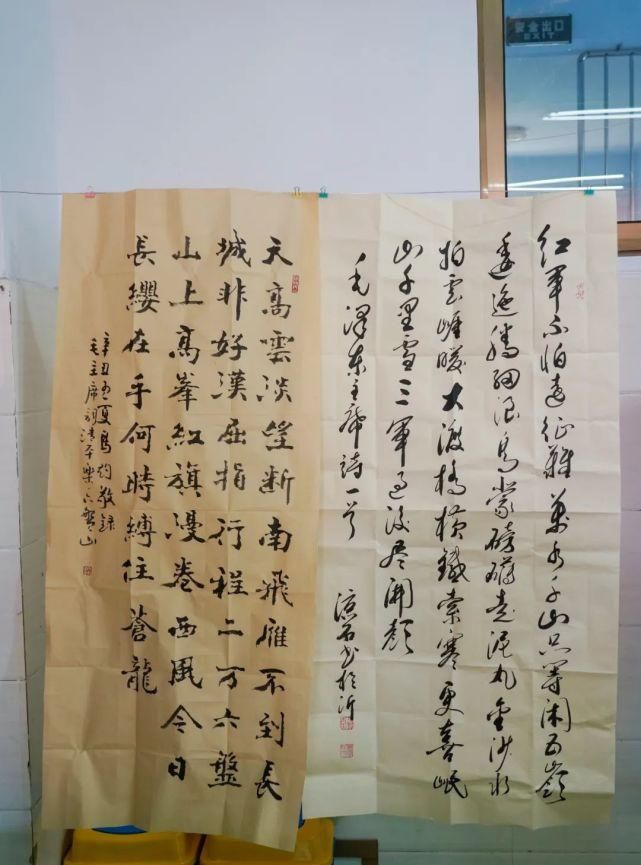 安全出口
EXIT
红軍不怕遠征難萬水千山只等闲五嶺
逶迤腾细浪烏蒙磅礴走泥丸金沙水
拍雲崖暖大渡橋横鐵索寒更喜岷
山千里雪三軍過後尽開颜
毛澤東主席詩一首
凉石书於沂
天高雲淡望断南飛雁不到長
城非好漢屈指行程二万六盤
山上高峯紅旗漫卷西風今日
長纓在手何時縛住蒼龍
辛丑孟夏敬録
毛主席词清平樂六盤山